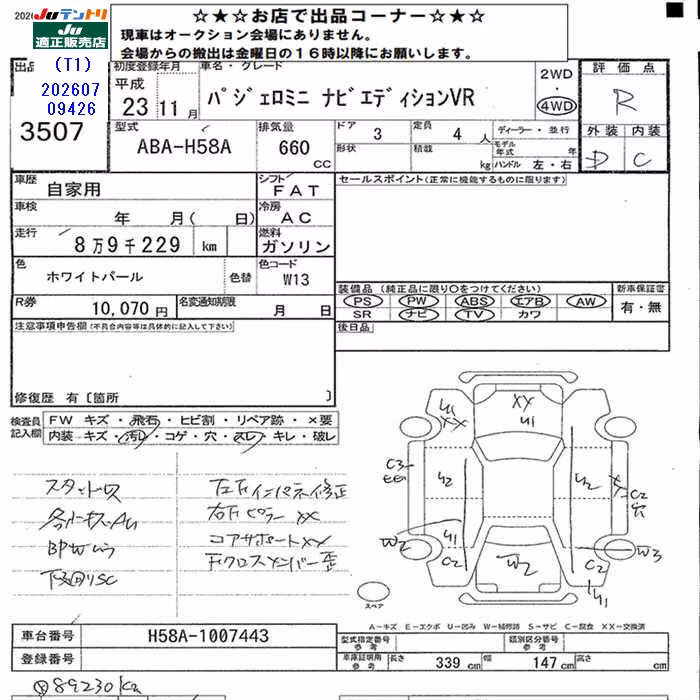 ☆★☆お店で出品コーナー☆★☆
現車はオークション会場にありません。
会場からの搬出は金曜日の16時以降にお願いします。
JU JUテントリ
JU
適正販売店
(T1)
202607
09426
出品
3507
初度登録年月
平成
23 11月
車名・グレード
パジェロミニ ナビエディションVR
2WD
・
4WD
評価点
R
外装 内装
D C
型式
ABA-H58A
排気量
660 CC
ドア 3
定員 4 人
形状
積載 kg
ディーラー・並行
モデル年式 年
ハンドル 左・右
車歴
自家用
シフト
FAT
車検
年 月( 日)
冷房
AC
走行
8万9千229 km
燃料
ガソリン
色
ホワイトパール
色替
色コード
W13
R券
10,070円
名変通知期限
月 日
セールスポイント(正常に機能するものに限ります)
装備品 (純正品に限り○をつけてください)
PS PW ABS エアB AW
SR ナビ TV カワ
新車保証書
有・無
後日品
注意事項申告欄(不具合内容等は具体的に記入して下さい)
修復歴 有〔箇所 〕
検査員
記入欄
FW キズ・飛石・ヒビ割・リペア跡・×要
内装 キズ・汚レ・コゲ・穴・スレ・キレ・破レ
下回りSC
左右インパネ修正
右Fピラー XX
コアサポートXX
Fクロスメンバー歪
XX
C3
C2
C2
C2
W2
W2
W3
スペア
A－キズ E－エクボ U－凹み W－補修跡 S－サビ C－腐食 XX－交換済
車台番号
H58A-1007443
登録番号
型式指定番号
参考
類別区分番号
参考
車庫証明用
参考
長さ 339 cm
幅 147 cm
高さ cm
89230km